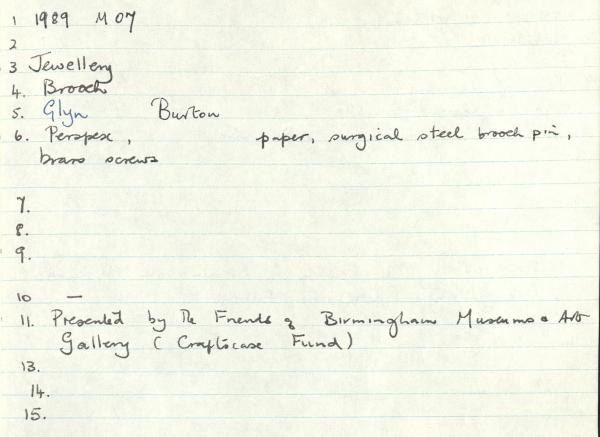 1 1989 M 07
2
3 Jewellery
4. Brooch
5. Glyn Burton
6. Perspex, paper, surgical steel brooch pin,
brass screws
7.
8.
9.
10 —
11. Presented by the Friends of Birmingham Museums & Art
Gallery (Craftscase Fund)
13.
14.
15.